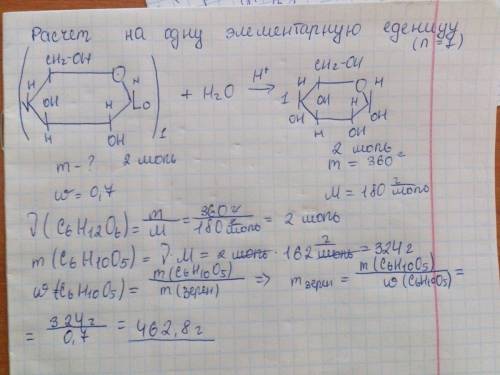 Расчет на одну элементарную еденицу
(n=1)
CH2-OH CH2-OH
H O H H O H
OH H LO + H2O H+ → 1 OH H
H OH OH H OH OH
1
m - ? 2 моль 2 моль
w = 0,7 m = 360 г
M = 180 г/моль
ν(C6H12O6) = m/M = 360 г/180 г/моль = 2 моль
m(C6H10O5) = ν·M = 2 моль · 162 г/моль = 324 г
w(C6H10O5) = m(C6H10O5)/m(зерен) => m зерен = m(C6H10O5)/w(C6H10O5) =
= 324 г/0,7 = 462,8 г